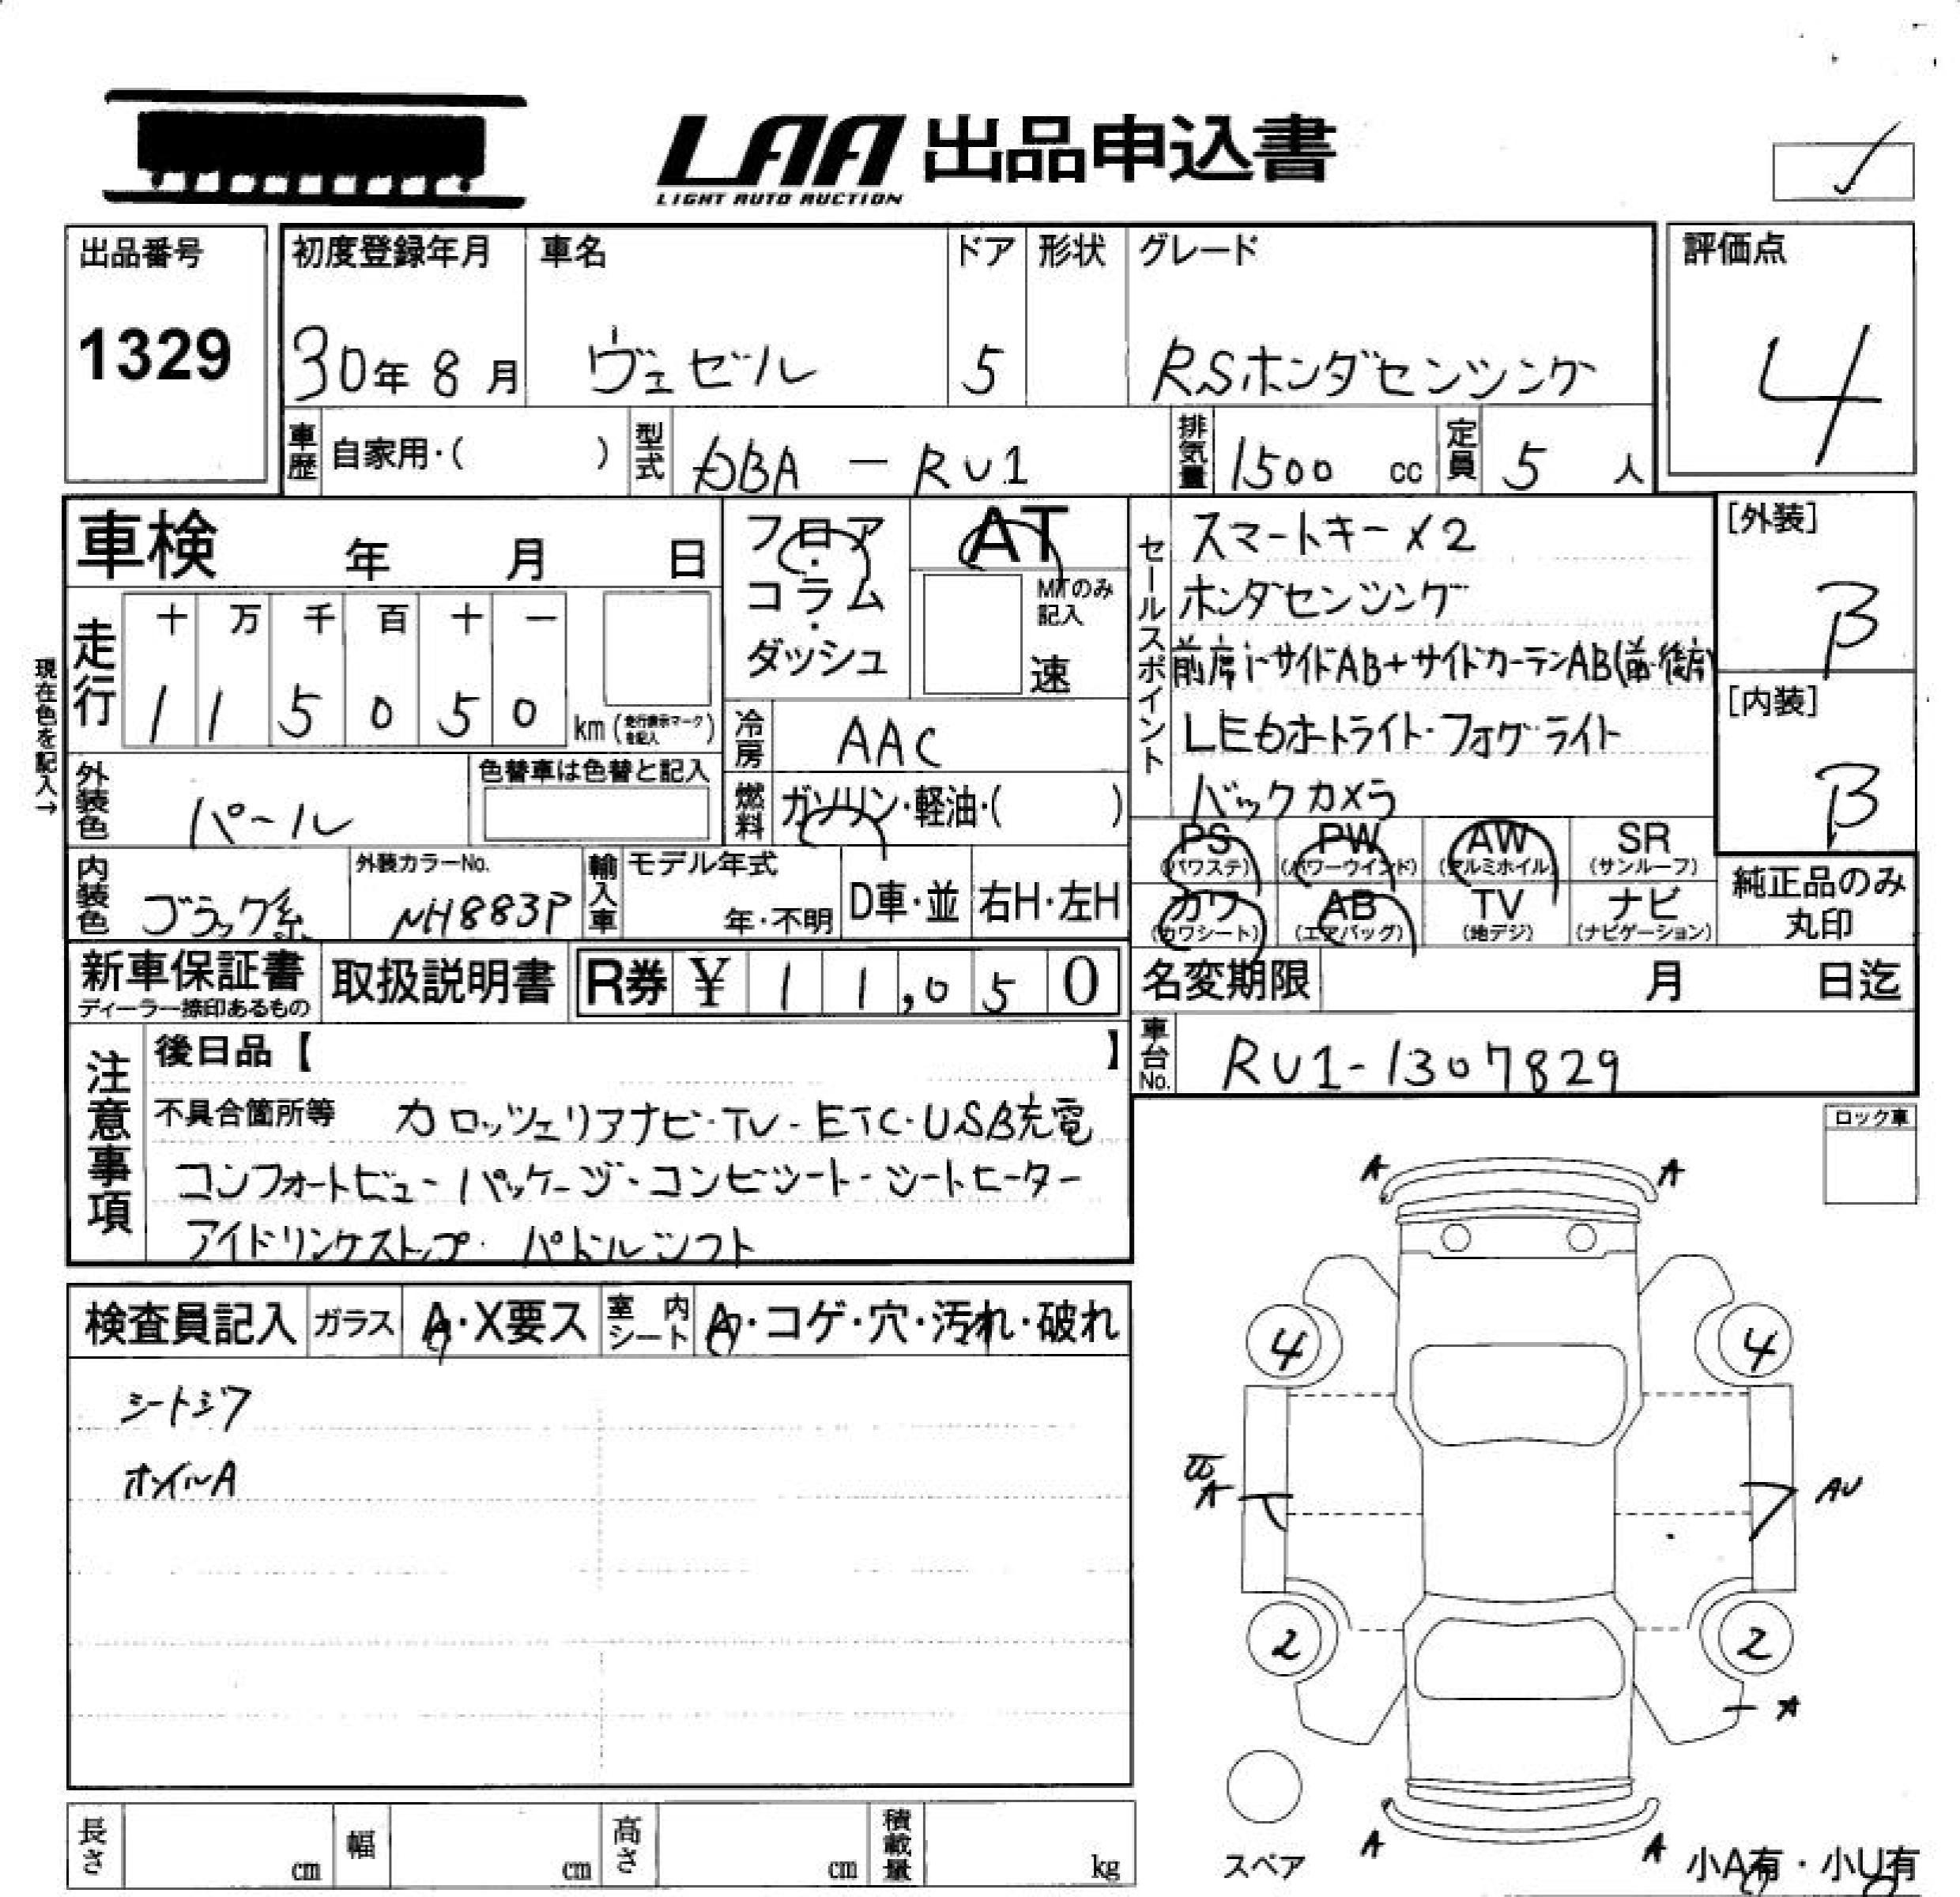 LAA 出品申込書
LIGHT AUTO AUCTION
出品番号
1329
初度登録年月
30年8月
車名
ヴェゼル
ドア
5
形状
グレード
RSホンダセンシング
評価点
4
車歴
自家用・( )
型式
DBA-RU1
排気量
1500 cc
定員
5 人
車検 年 月 日
フロア・コラム・ダッシュ
AT
MTのみ記入
速
セールスポイント
スマートキー×2
ホンダセンシング
前席i-サイドAB+サイドカーテンAB(前・後席)
LEDホトライト・フォグライト
バックカメラ
[外装]
B
[内装]
B
現在色を記入→
走行
十 万 千 百 十 一
1 1 5 0 5 0
km(走行表示マークを記入)
冷房
AAC
外装色
パール
色替車は色替と記入
燃料
ガソリン・軽油・( )
PS (パワステ)
PW (パワーウインド)
AW (アルミホイル)
SR (サンルーフ)
カワ (カワシート)
AB (エアバッグ)
TV (地デジ)
ナビ (ナビゲーション)
純正品のみ
丸印
内装色
ブラック系
外装カラーNo.
NH883P
輸入車
モデル年式
年・不明
D車・並
右H・左H
新車保証書
ディーラー捺印あるもの
取扱説明書
R券 ¥ 11,050
名変期限 月 日迄
車台No.
RU1-1307829
注意事項
後日品【 】
不具合箇所等 カロッツェリアナビ・TV・ETC・USB充電
コンフォートビューパッケージ・コンビシート・シートヒーター
アイドリングストップ・パドルシフト
ロック車
検査員記入
ガラス
A・X要ス
室内シート
A・コゲ・穴・汚れ・破れ
シートシワ
ホイルA
A
A
4
4
A
AU
2
2
A
A
A
スペア
小A有・小U有
長さ cm
幅 cm
高さ cm
積載量 kg